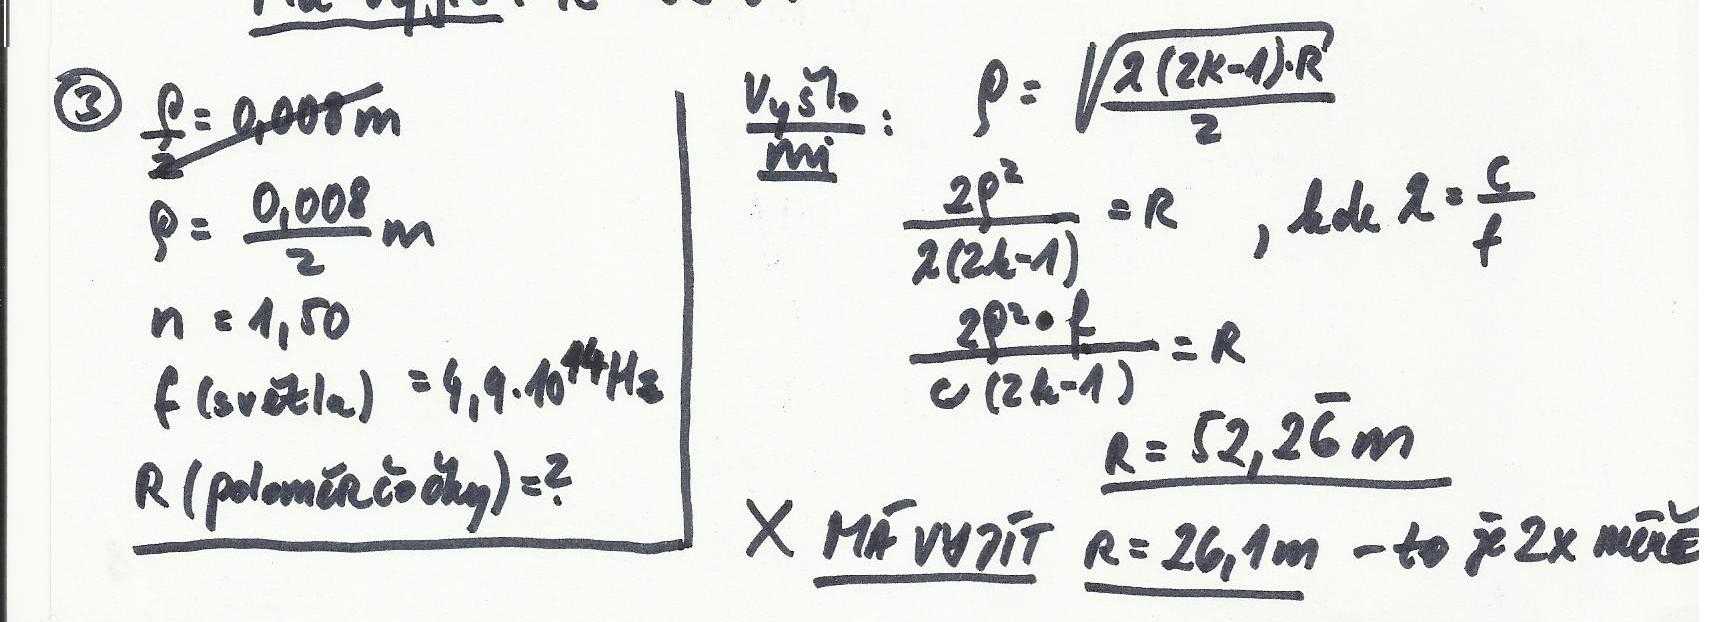 ③ ρ/2 = 0,008 m
ρ = 0,008/2 m
n = 1,50
f (světla) = 4,9.10¹⁴ Hz
R (poloměr čočky) = ?
Vyšlo mi: ρ = √(λ(2k-1)·R/2)
2ρ²/λ(2k-1) = R , kde λ = c/f
2ρ²·f/c(2k-1) = R
R = 52,26̄ m
X MÁ VYJÍT R = 26,1 m - to je 2x méně